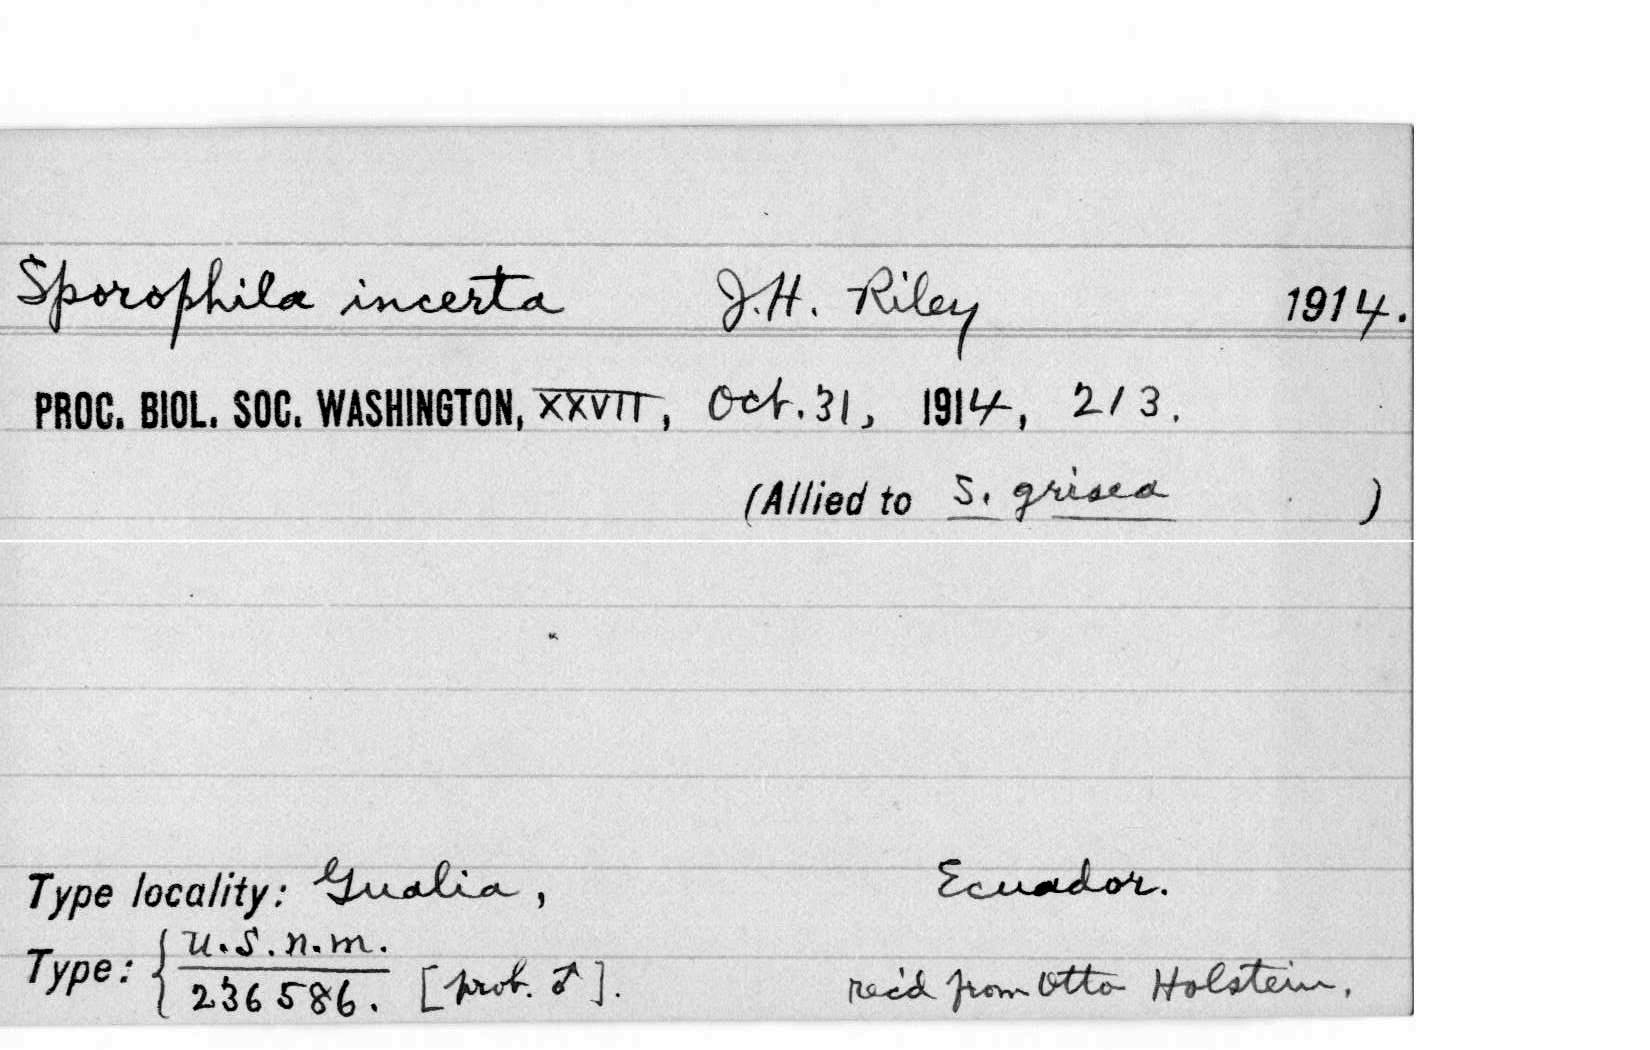 Sporophila incerta J.H. Riley 1914.
PROC. BIOL. SOC. WASHINGTON, XXVII, Oct. 31, 1914, 213.
(Allied to S. grisea )
Type locality: Gualia, Ecuador.
Type: { U.S.N.M.
236586. [prob. ♂]. rec'd from Otto Holstein.